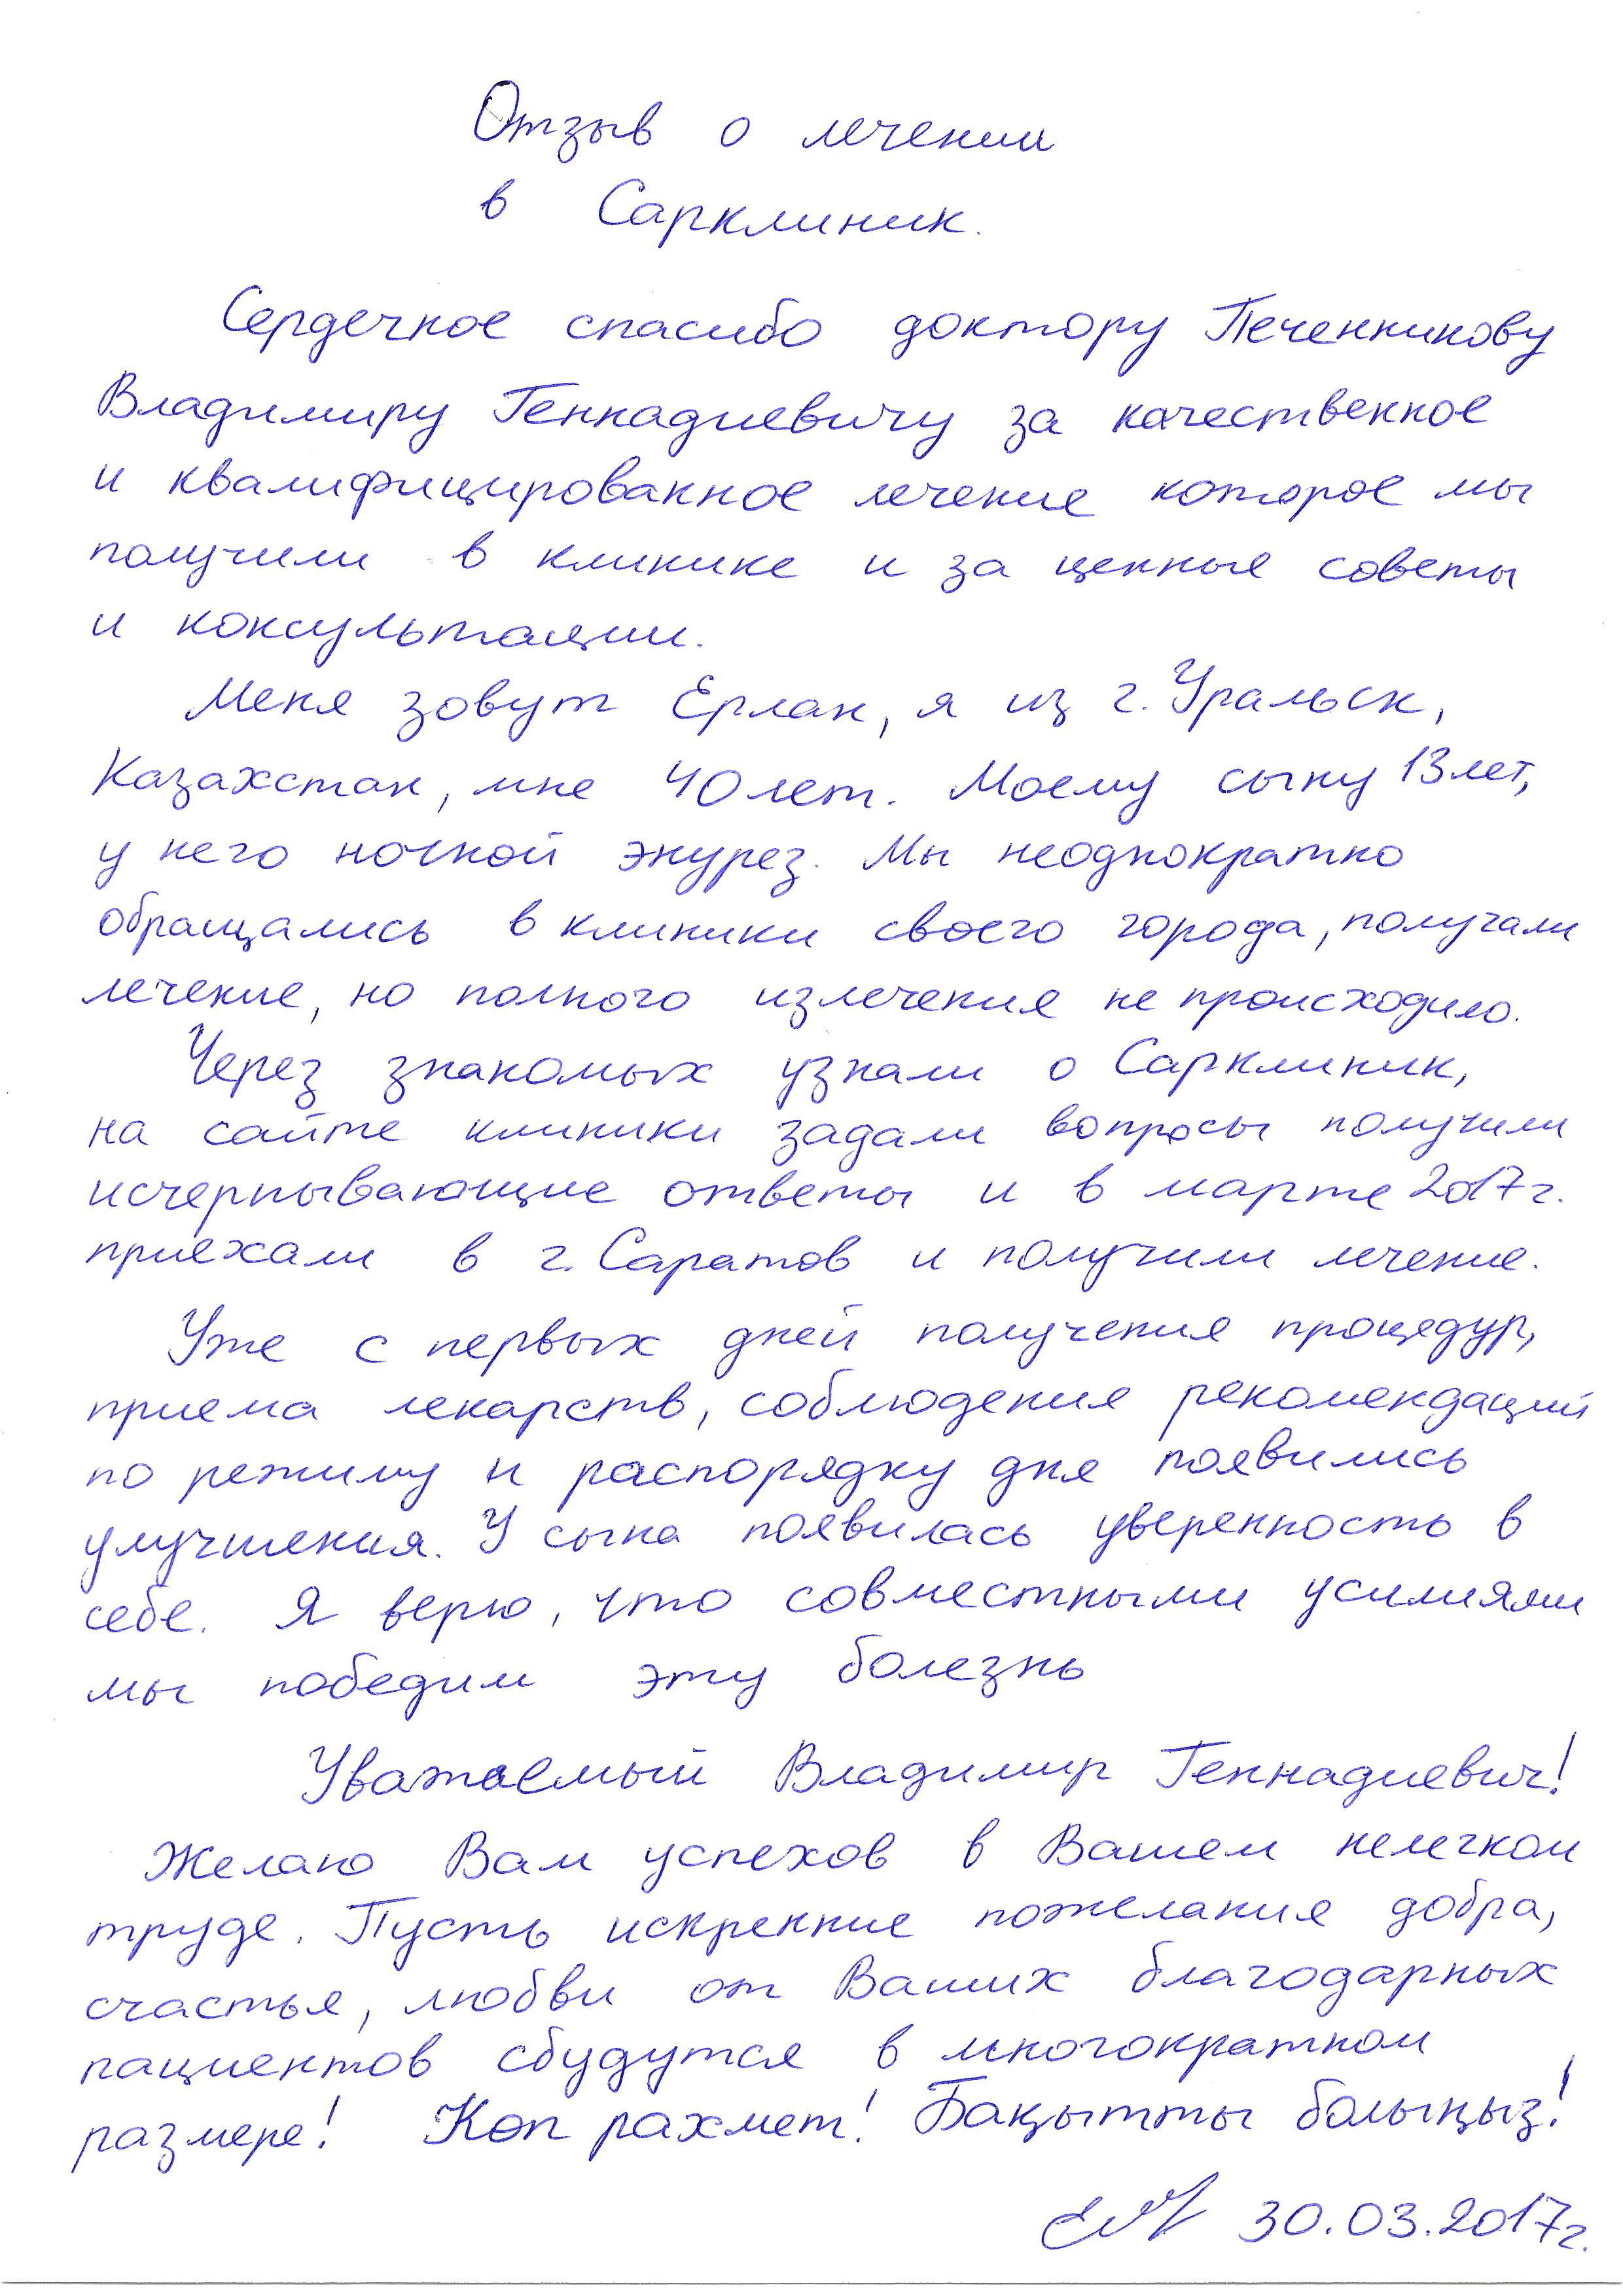 Отзыв о лечении
в Сарклиник.
Сердечное спасибо доктору Печенникову
Владимиру Геннадиевичу за качественное
и квалифицированное лечение которое мы
получили в клинике и за ценные советы
и консультации.
Меня зовут Ерлан, я из г. Уральск,
Казахстан, мне 40 лет. Моему сыну 13 лет,
у него ночной энурез. Мы неоднократно
обращались в клиники своего города, получали
лечение, но полного излечения не происходило.
Через знакомых узнали о Сарклиник,
на сайте клиники задали вопросы получили
исчерпывающие ответы и в марте 2017г.
приехали в г. Саратов и получили лечение.
Уже с первых дней получения процедур,
приема лекарств, соблюдения рекомендаций
по режиму и распорядку дня появились
улучшения. У сына появилась уверенность в
себе. Я верю, что совместными усилиями
мы победим эту болезнь
Уважаемый Владимир Геннадиевич!
Желаю Вам успехов в Вашем нелегком
труде. Пусть искренние пожелания добра,
счастья, любви от Ваших благодарных
пациентов сбудутся в многократном
размере! Көп рахмет! Бақытты болыңыз!
30.03.2017г.